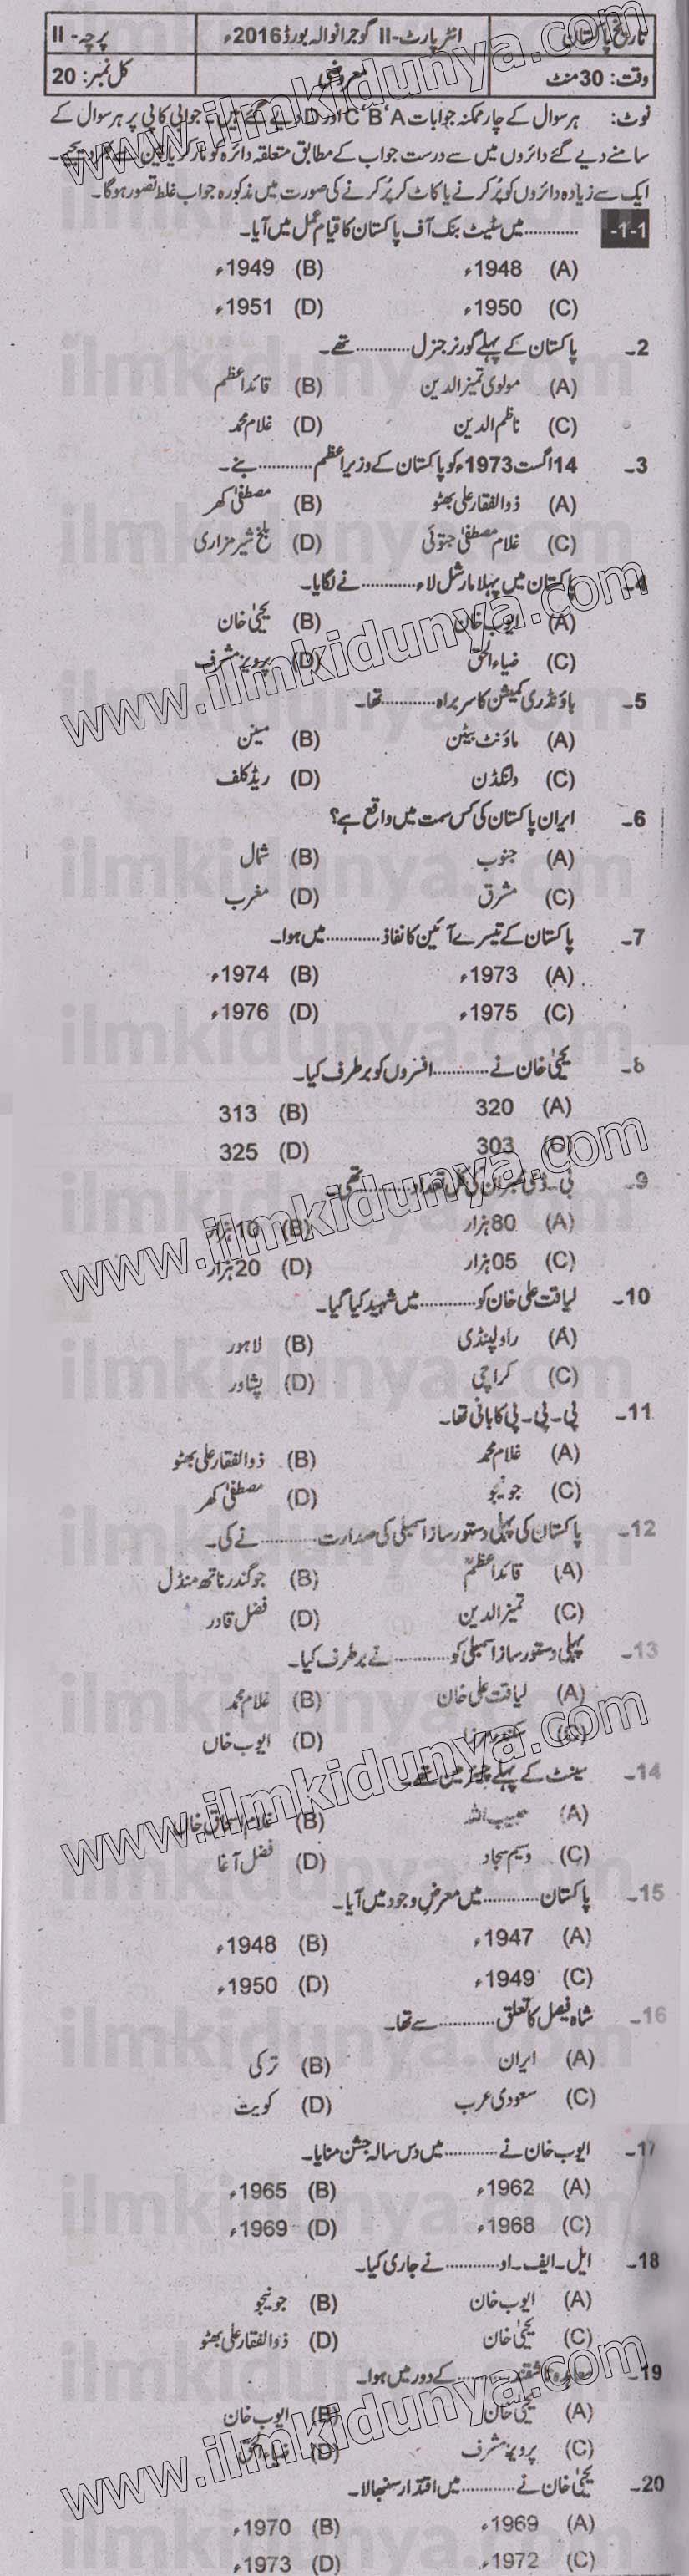 تاریخ پاکستان انٹر پارٹ-II گوجرانوالہ بورڈ 2016ء پرچہ-II
وقت: 30 منٹ معروضی کل نمبر: 20
نوٹ: ہر سوال کے چار ممکنہ جوابات A'B'C اور D دیے گئے ہیں۔ جوابی کاپی پر ہر سوال کے
سامنے دیے گئے دائروں میں سے درست جواب کے مطابق متعلقہ دائرہ کو مارکر یا پین سے بھر دیجیے۔
ایک سے زیادہ دائروں کو پُر کرنے یا کاٹ کر پُر کرنے کی صورت میں مذکورہ جواب غلط تصور ہوگا۔
1-1- ............ میں سٹیٹ بنک آف پاکستان کا قیام عمل میں آیا۔
(A) 1948ء (B) 1949ء
(C) 1950ء (D) 1951ء
2۔ پاکستان کے پہلے گورنر جنرل ............ تھے۔
(A) مولوی تمیز الدین (B) قائداعظم
(C) ناظم الدین (D) غلام محمد
3۔ 14 اگست 1973ء کو پاکستان کے وزیراعظم ............ بنے۔
(A) ذوالفقار علی بھٹو (B) مصطفیٰ کھر
(C) غلام مصطفیٰ جتوئی (D) بلخ شیر مزاری
4۔ پاکستان میں پہلا مارشل لاء ............ نے لگایا۔
(A) ایوب خان (B) یحییٰ خان
(C) ضیاء الحق (D) پرویز مشرف
5۔ باؤنڈری کمیشن کا سربراہ ............ تھا۔
(A) ماؤنٹ بیٹن (B) مینن
(C) ولنگڈن (D) ریڈ کلف
6۔ ایران پاکستان کی کس سمت میں واقع ہے؟
(A) جنوب (B) شمال
(C) مشرق (D) مغرب
7۔ پاکستان کے تیسرے آئین کا نفاذ ............ میں ہوا۔
(A) 1973ء (B) 1974ء
(C) 1975ء (D) 1976ء
8۔ یحییٰ خان نے ............ افسروں کو برطرف کیا۔
(A) 320 (B) 313
(C) 303 (D) 325
9۔ بی۔ ڈی ممبران کی کل تعداد ............ تھی۔
(A) 80 ہزار (B) 10 ہزار
(C) 05 ہزار (D) 20 ہزار
10۔ لیاقت علی خان کو ............ میں شہید کیا گیا۔
(A) راولپنڈی (B) لاہور
(C) کراچی (D) پشاور
11۔ پی۔ پی۔ پی کا بانی تھا۔
(A) غلام محمد (B) ذوالفقار علی بھٹو
(C) جونیجو (D) مصطفیٰ کھر
12۔ پاکستان کی پہلی دستور ساز اسمبلی کی صدارت ............ نے کی۔
(A) قائداعظمؒ (B) جوگندر ناتھ منڈل
(C) تمیز الدین (D) فضل قادر
13۔ پہلی دستور ساز اسمبلی کو ............ نے برطرف کیا۔
(A) لیاقت علی خان (B) غلام محمد
(C) سکندر مرزا (D) ایوب خاں
14۔ سینٹ کے پہلے چیئرمین تھے۔
(A) حبیب اللہ (B) غلام اسحاق خاں
(C) وسیم سجاد (D) فضل آغا
15۔ پاکستان ............ میں معرضِ وجود میں آیا۔
(A) 1947ء (B) 1948ء
(C) 1949ء (D) 1950ء
16۔ شاہ فیصل کا تعلق ............ سے تھا۔
(A) ایران (B) ترکی
(C) سعودی عرب (D) کویت
17۔ ایوب خان نے ............ میں دس سالہ جشن منایا۔
(A) 1962ء (B) 1965ء
(C) 1968ء (D) 1969ء
18۔ ایل۔ ایف۔ او ............ نے جاری کیا۔
(A) ایوب خان (B) جونیجو
(C) یحییٰ خان (D) ذوالفقار علی بھٹو
19۔ معاہدہ تاشقند ............ کے دور میں ہوا۔
(A) یحییٰ خان (B) ایوب خان
(C) پرویز مشرف (D) ضیاء الحق
20۔ یحییٰ خان نے ............ میں اقتدار سنبھالا۔
(A) 1969ء (B) 1970ء
(C) 1972ء (D) 1973ء
www.ilmkidunya.com
www.ilmkidunya.com
www.ilmkidunya.com
www.ilmkidunya.com
www.ilmkidunya.com